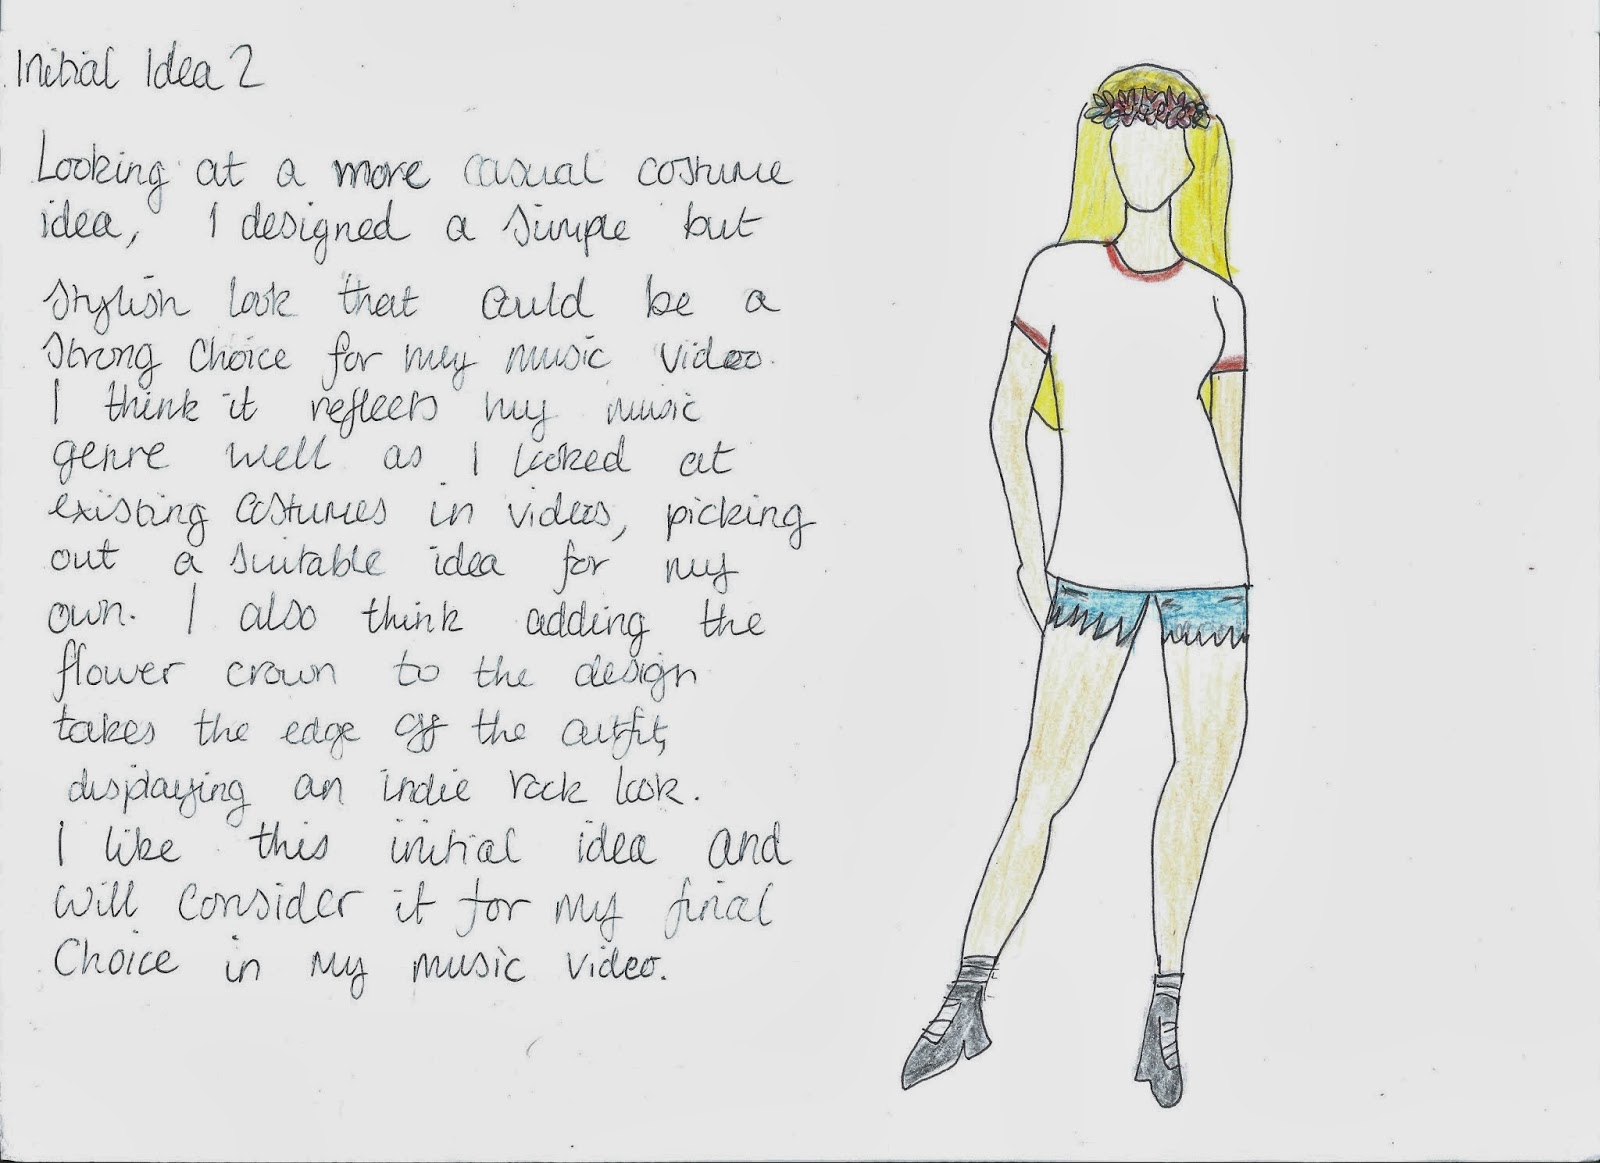 Initial Idea 2
Looking at a more casual costume
idea, I designed a simple but
stylish look that could be a
strong choice for my music video.
I think it reflects my music
genre well as I looked at
existing costumes in videos, picking
out a suitable idea for my
own. I also think adding the
flower crown to the design
takes the edge off the outfit,
displaying an indie rock look.
I like this initial idea and
will consider it for my final
choice in my music video.